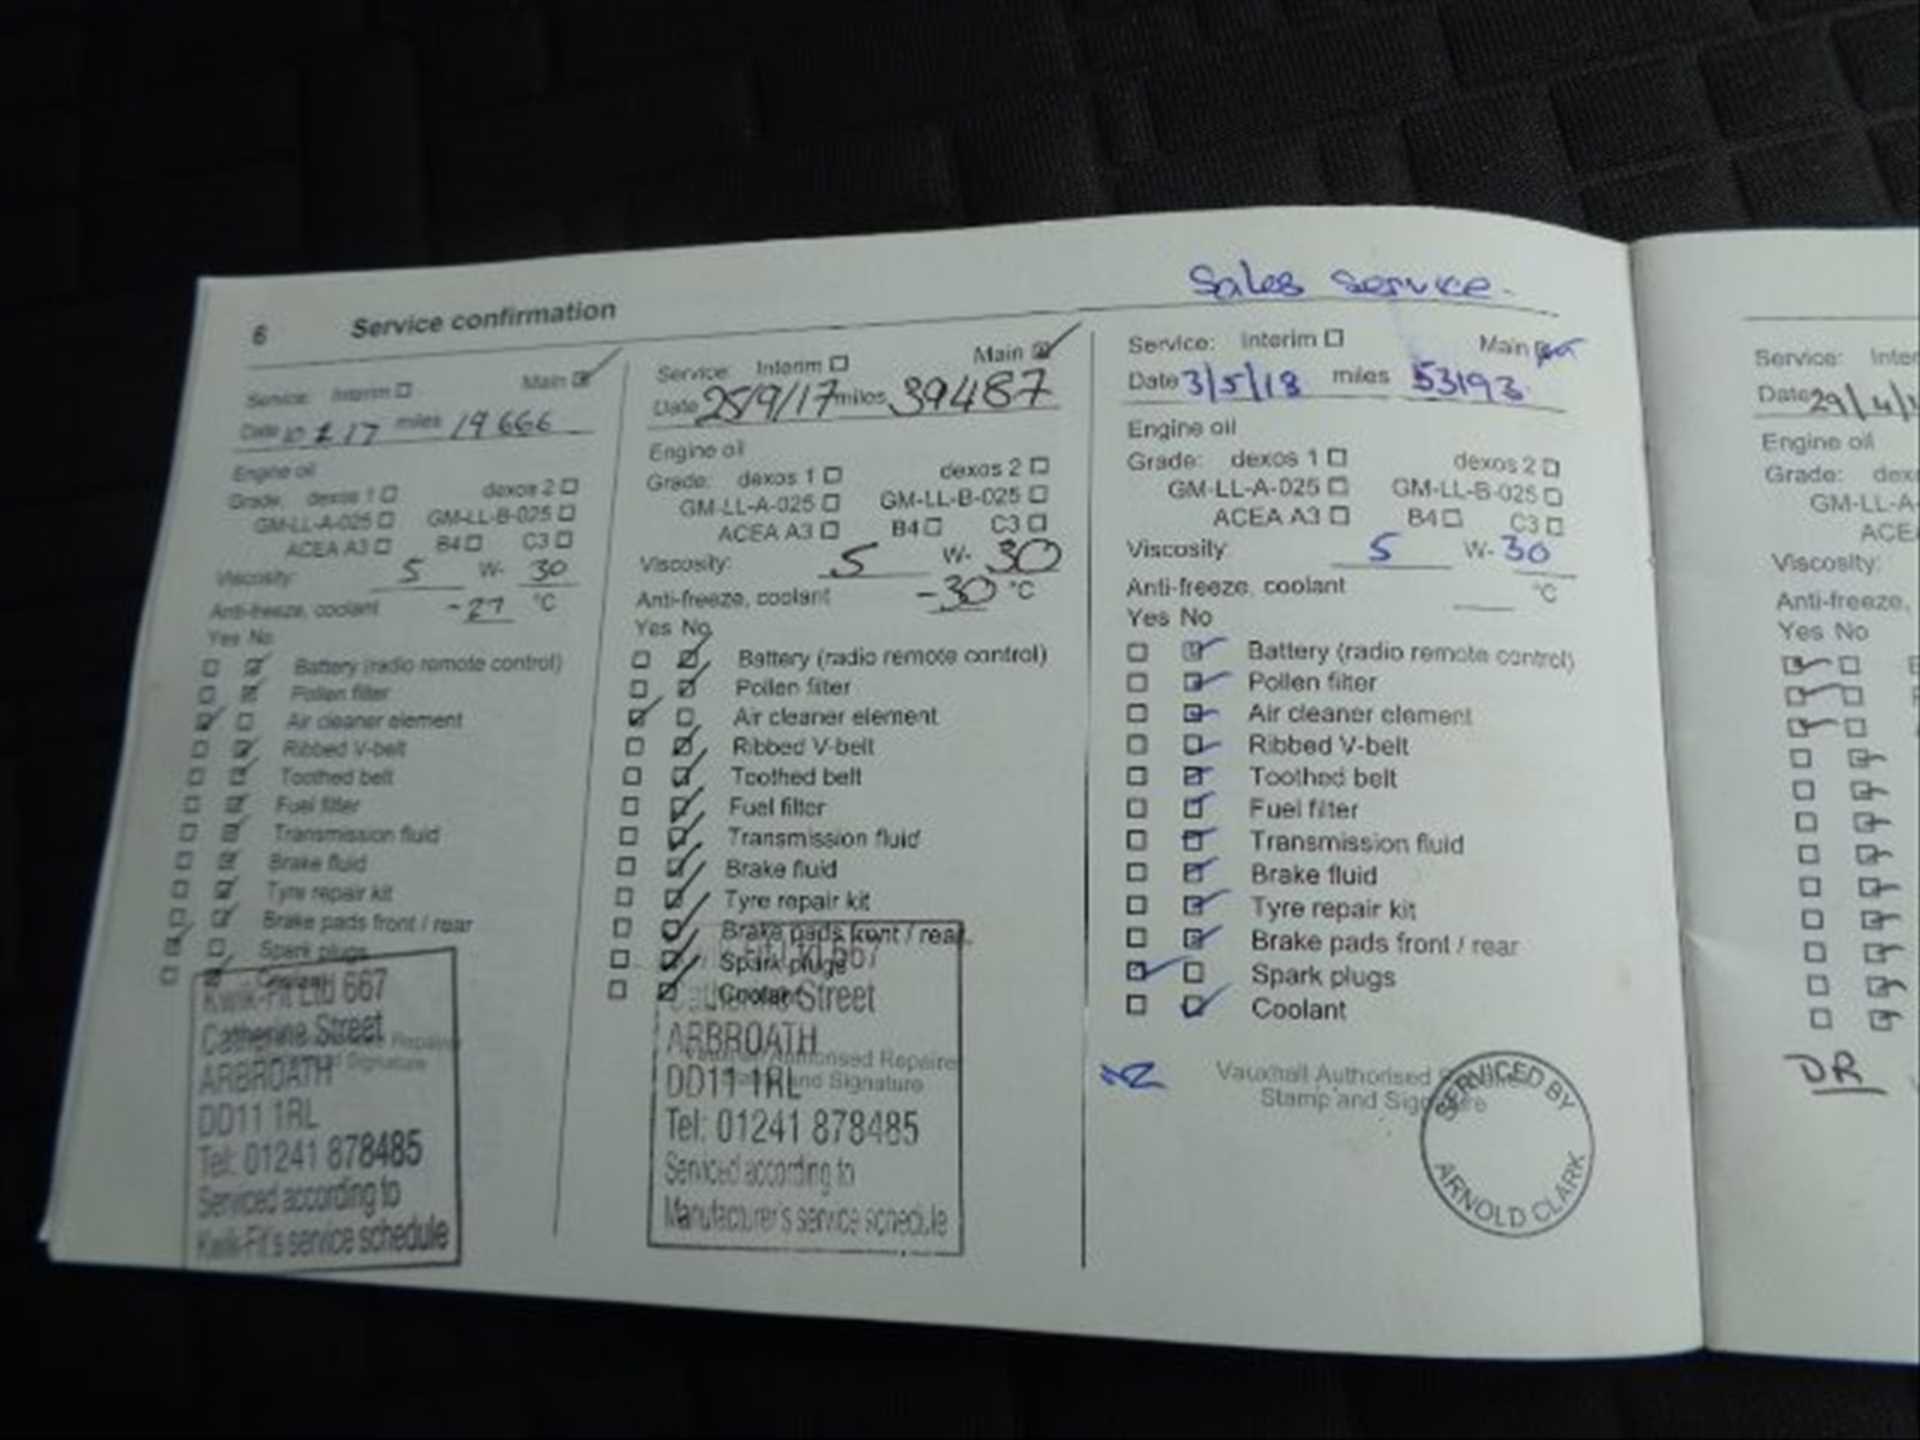 6 Service confirmation
Sales service.
Service: Interim Main
Date 10 2 17 miles 19666
Engine oil
Grade: dexos 1 dexos 2
GM-LL-A-025 GM-LL-B-025
ACEA A3 B4 C3
Viscosity: 5 W- 30
Anti-freeze, coolant -27 °C
Yes No
Battery (radio remote control)
Pollen filter
Air cleaner element
Ribbed V-belt
Toothed belt
Fuel filter
Transmission fluid
Brake fluid
Tyre repair kit
Brake pads front / rear
Spark plugs
Coolant
Kwik-Fit Ltd 667
Catherine Street
ARBROATH
DD11 1RL
Tel: 01241 878485
Serviced according to
Kwik-Fit's service schedule
Repairer
Signature
Service: Interim Main
Date 25/9/17 miles 39487
Engine oil
Grade: dexos 1 dexos 2
GM-LL-A-025 GM-LL-B-025
ACEA A3 B4 C3
Viscosity: 5 W- 30
Anti-freeze, coolant -30 °C
Yes No
Battery (radio remote control)
Pollen filter
Air cleaner element
Ribbed V-belt
Toothed belt
Fuel filter
Transmission fluid
Brake fluid
Tyre repair kit
Brake pads front / rear
Spark plugs
Coolant
667
Catherine Street
ARBROATH
Vauxhall Authorised Repairer
DD11 1RL
and Signature
Tel: 01241 878485
Serviced according to
Manufacturer's service schedule
Service: Interim Main
Date 3/5/18 miles 53193
Engine oil
Grade: dexos 1 dexos 2
GM-LL-A-025 GM-LL-B-025
ACEA A3 B4 C3
Viscosity: 5 W- 30
Anti-freeze, coolant °C
Yes No
Battery (radio remote control)
Pollen filter
Air cleaner element
Ribbed V-belt
Toothed belt
Fuel filter
Transmission fluid
Brake fluid
Tyre repair kit
Brake pads front / rear
Spark plugs
Coolant
Vauxhall Authorised
Stamp and Signature
SERVICED BY
ARNOLD CLARK
Service: Inter
Date 29/4/1
Engine oil
Grade: dexo
GM-LL-A-
ACEA
Viscosity:
Anti-freeze,
Yes No
DR